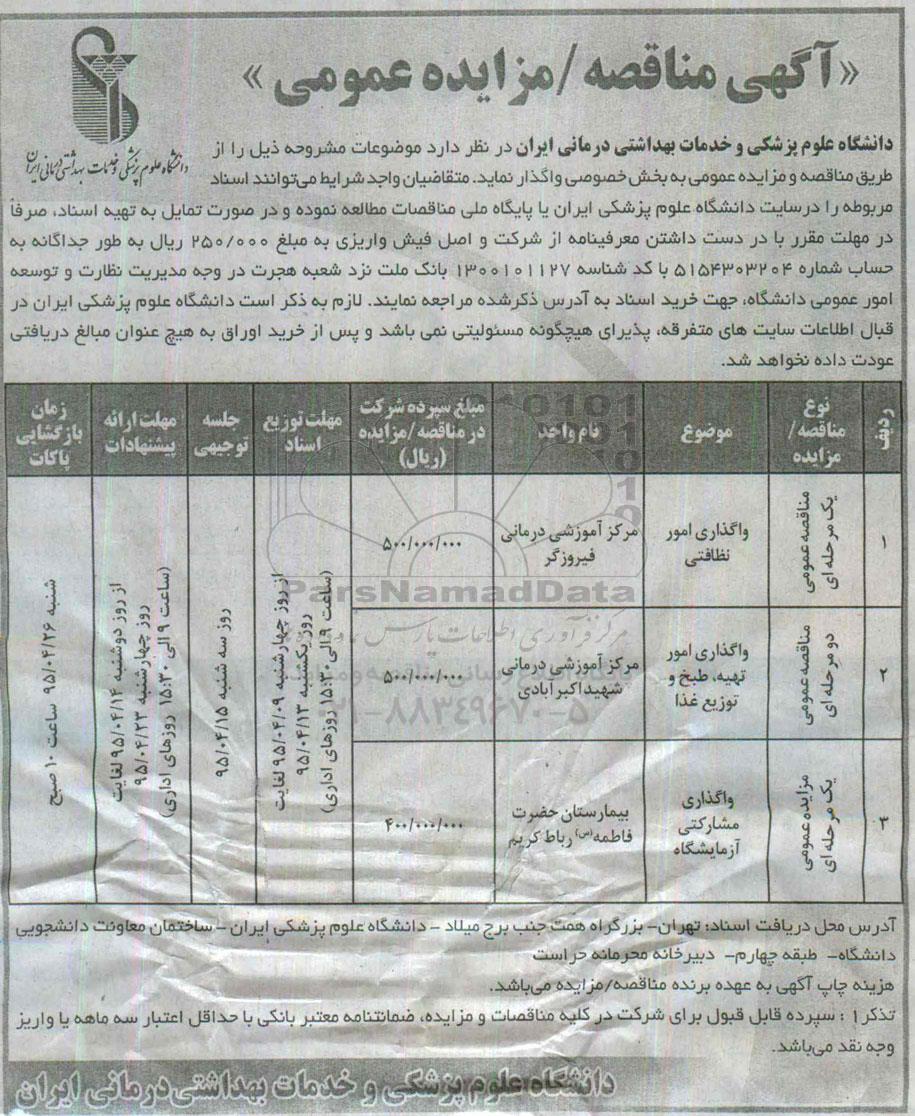 «آگهی مناقصه/مزایده عمومی»
دانشگاه علوم پزشکی و خدمات بهداشتی درمانی ایران
دانشگاه علوم پزشکی و خدمات بهداشتی درمانی ایران در نظر دارد موضوعات مشروحه ذیل را از
طریق مناقصه و مزایده عمومی به بخش خصوصی واگذار نماید. متقاضیان واجد شرایط می‌توانند اسناد
مربوطه را درسایت دانشگاه علوم پزشکی ایران یا پایگاه ملی مناقصات مطالعه نموده و در صورت تمایل به تهیه اسناد، صرفاً
در مهلت مقرر با در دست داشتن معرفینامه از شرکت و اصل فیش واریزی به مبلغ ۲۵۰/۰۰۰ ریال به طور جداگانه به
حساب شماره ۵۱۵۴۳۰۳۲۰۴ با کد شناسه ۱۳۰۰۱۰۱۱۲۷ بانک ملت نزد شعبه هجرت در وجه مدیریت نظارت و توسعه
امور عمومی دانشگاه، جهت خرید اسناد به آدرس ذکرشده مراجعه نمایند. لازم به ذکر است دانشگاه علوم پزشکی ایران در
قبال اطلاعات سایت های متفرقه، پذیرای هیچگونه مسئولیتی نمی باشد و پس از خرید اوراق به هیچ عنوان مبالغ دریافتی
عودت داده نخواهد شد.
ردیف
نوع
مناقصه/
مزایده
موضوع
نام واحد
مبلغ سپرده شرکت
در مناقصه/مزایده
(ریال)
مهلت توزیع
اسناد
جلسه
توجیهی
مهلت ارائه
پیشنهادات
زمان
بازگشایی
پاکات
۱
مناقصه عمومی
یک مرحله ای
واگذاری امور
نظافتی
مرکز آموزشی درمانی
فیروزگر
۵۰۰/۰۰۰/۰۰۰
از روز چهارشنبه ۹۵/۰۴/۰۹ لغایت
روز یکشنبه ۹۵/۰۴/۱۳
(ساعت ۹ الی ۱۵:۳۰ روزهای اداری)
روز سه شنبه ۹۵/۰۴/۱۵
از روز دوشنبه ۹۵/۰۴/۱۴ لغایت
روز چهارشنبه ۹۵/۰۴/۲۳
(ساعت ۹ الی ۱۵:۳۰ روزهای اداری)
شنبه ۹۵/۰۴/۲۶ ساعت ۱۰ صبح
۲
مناقصه عمومی
دو مرحله ای
واگذاری امور
تهیه، طبخ و
توزیع غذا
مرکز آموزشی درمانی
شهید اکبرآبادی
۵۰۰/۰۰۰/۰۰۰
۳
مزایده عمومی
یک مرحله ای
واگذاری
مشارکتی
آزمایشگاه
بیمارستان حضرت
فاطمه(س) رباط کریم
۴۰۰/۰۰۰/۰۰۰
ParsNamadData
مرکز فرآوری اطلاعات پارس نماد داده ها
۰۲۱-۸۸۳۴۹۶۷۰-۵
آدرس محل دریافت اسناد: تهران- بزرگراه همت جنب برج میلاد - دانشگاه علوم پزشکی ایران - ساختمان معاونت دانشجویی
دانشگاه- طبقه چهارم- دبیرخانه محرمانه حراست
هزینه چاپ آگهی به عهده برنده مناقصه/مزایده می‌باشد.
تذکر۱: سپرده قابل قبول برای شرکت در کلیه مناقصات و مزایده، ضمانتنامه معتبر بانکی با حداقل اعتبار سه ماهه یا واریز
وجه نقد می‌باشد.
دانشگاه علوم پزشکی و خدمات بهداشتی درمانی ایران